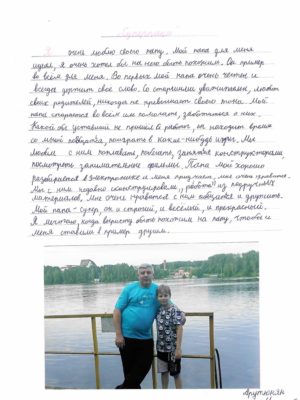 Суперпапа
Я очень люблю своего папу. Мой папа для меня
идеал, я очень хотел бы на него быть похожим. Он пример
во всём для меня. Во первых мой папа очень честный и
всегда держит своё слово. Со старшими уважителен, любит
своих родителей, никогда не превышает своего тона. Мой
папа старается во всём им помогать, заботиться о них.
Какой бы уставший не пришёл с работы, он находит время
со мной поболтать, поиграть в какие-нибудь игры. Мы
любим с ним поплавать, почитать, заняться конструктором,
посмотреть занимательные фильмы. Папа мой хорошо
разбирается в электронике и меня приучает, мне очень нравится.
Мы с ним недавно конструировали робота из подручных
материалов. Мне очень нравится с ним общаться и дружить.
Мой папа - супер, он и строгий, и весёлый, и прекрасный.
Я мечтаю, когда вырасту быть похожим на папу, чтобы и
меня ставили в пример другим.
Арутюнян